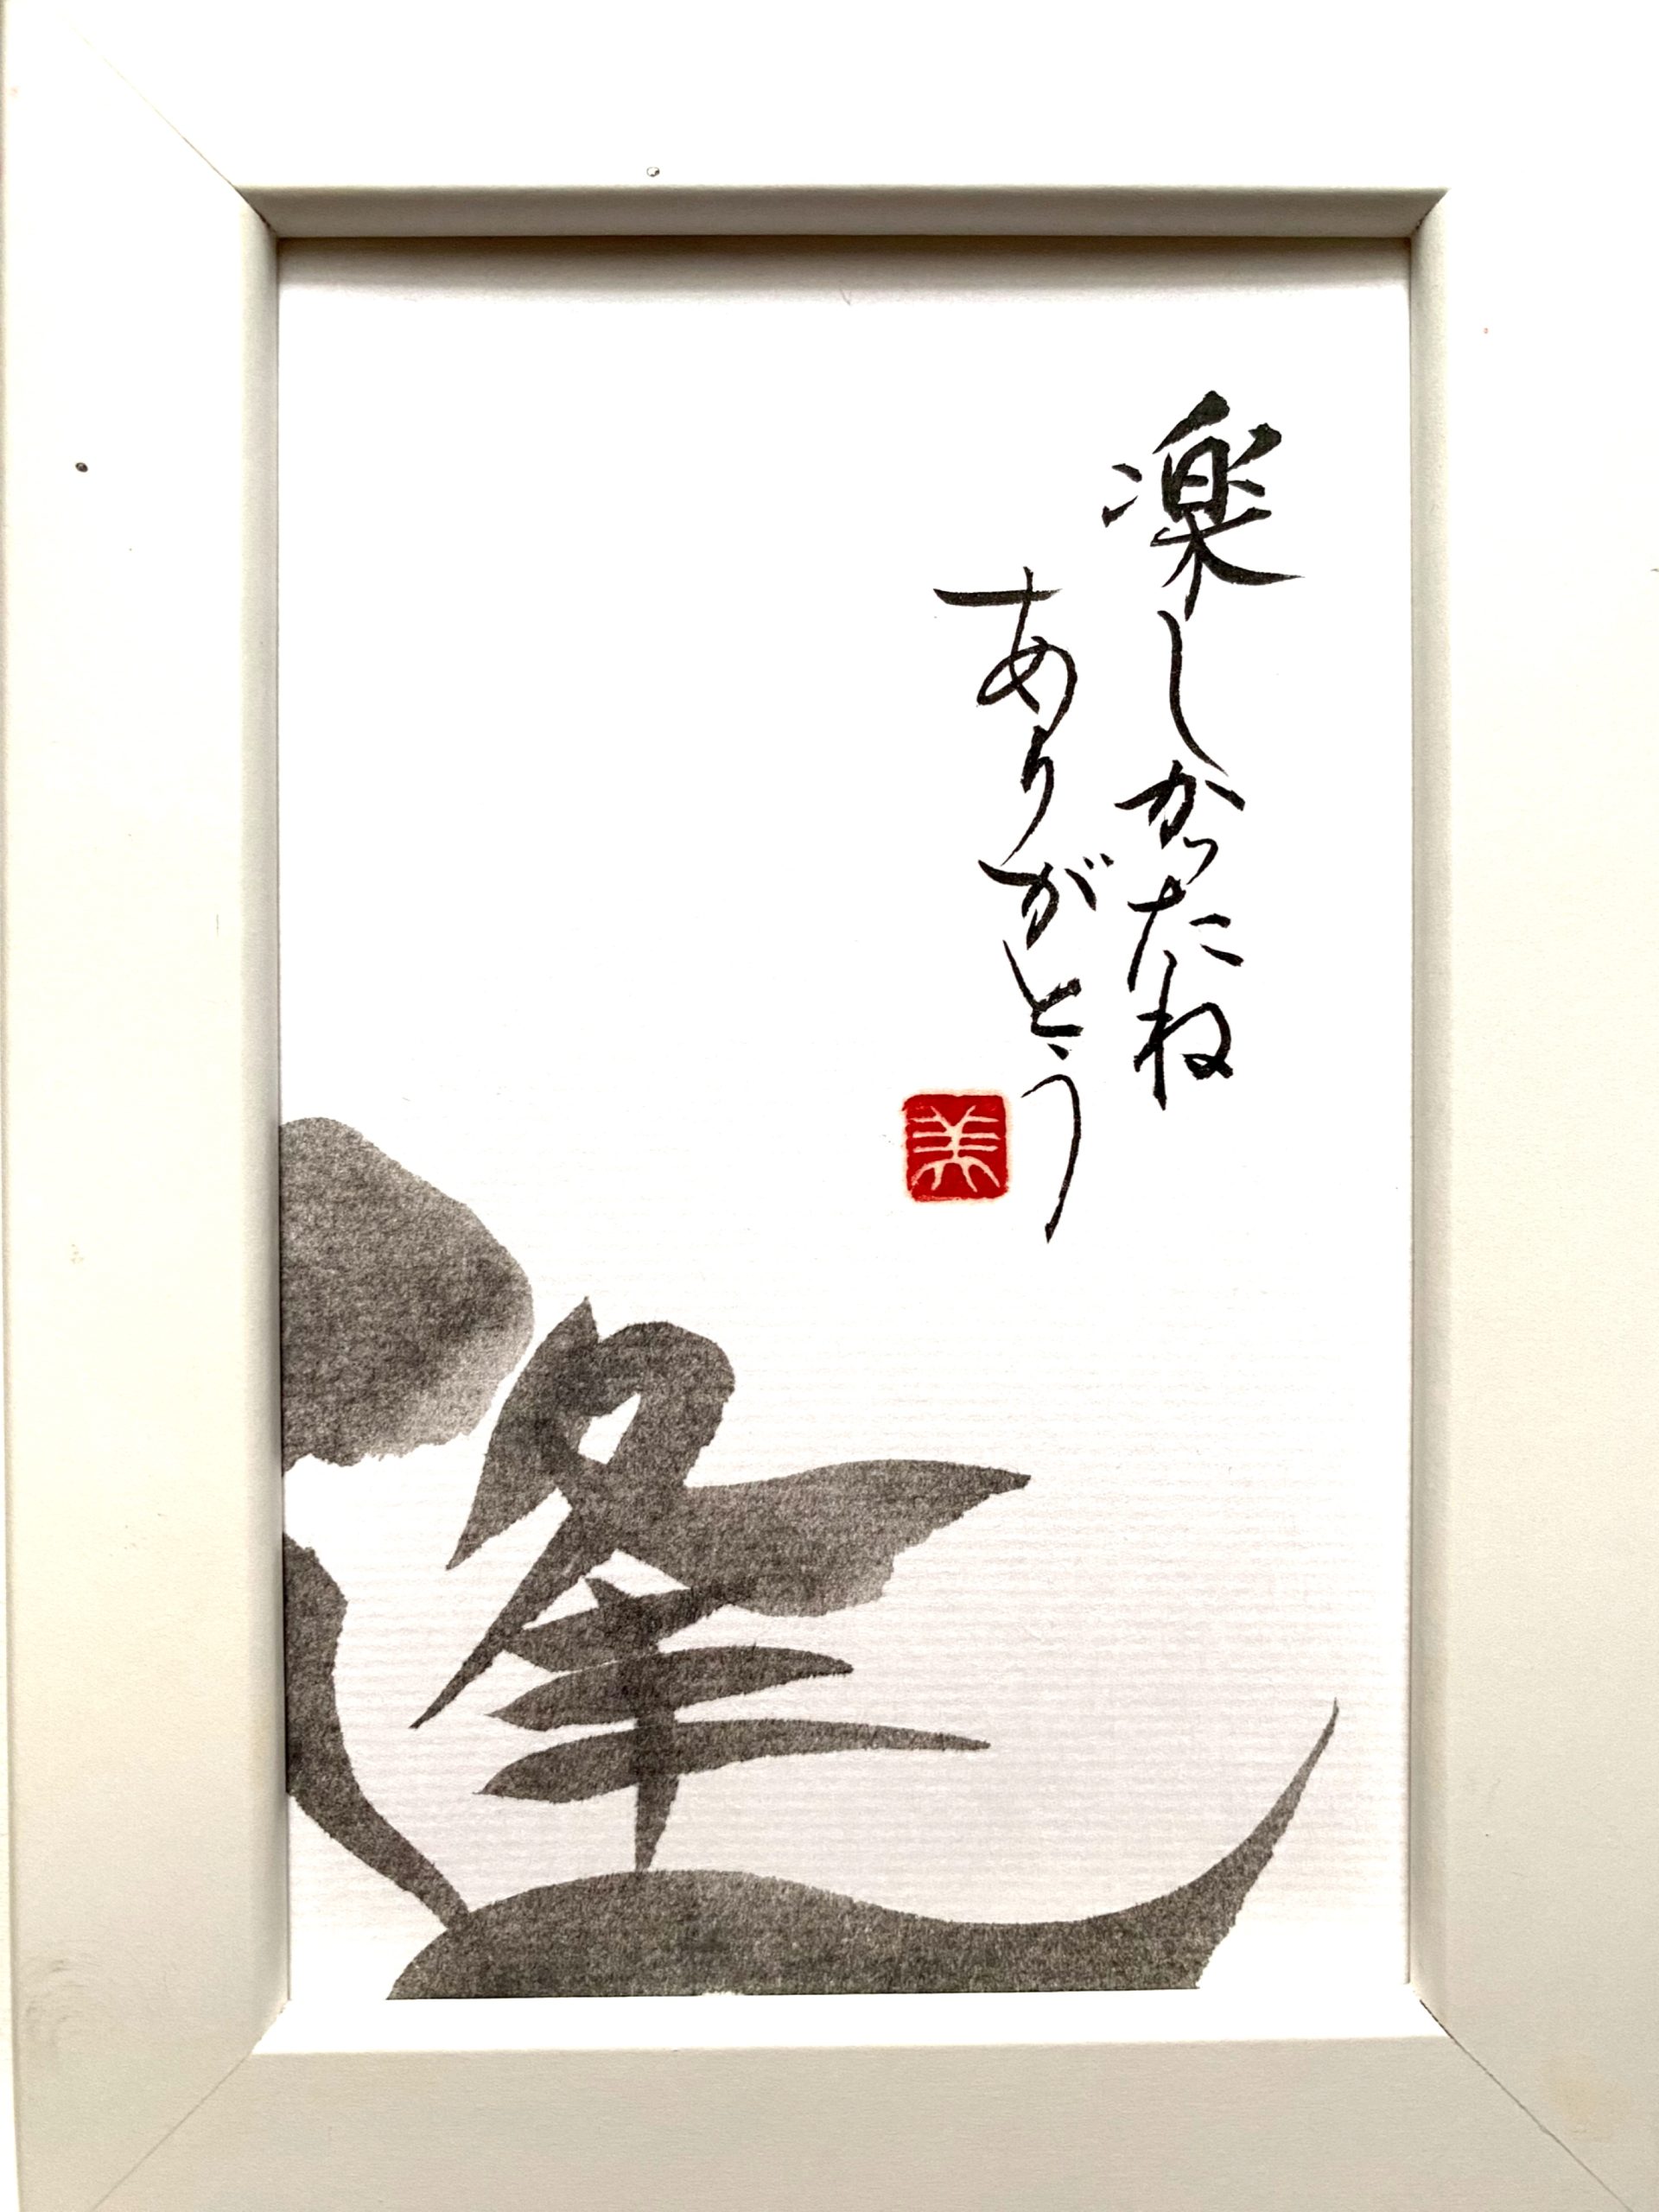 楽しかったね
ありがとう
美
逢